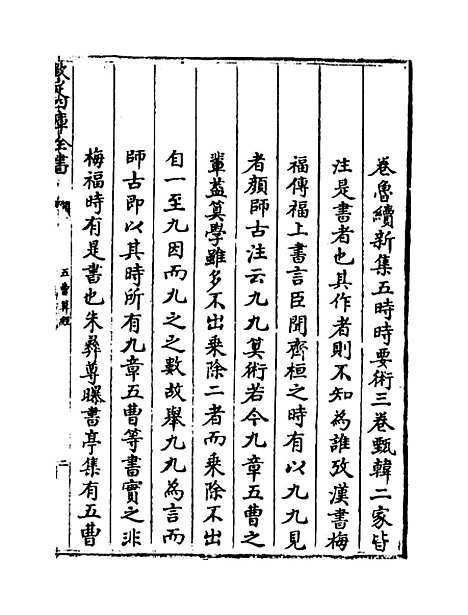 卷魯續新集五時時要術三卷甄韓二家皆
注是書者也其作者則不知為誰攷漢書梅
福傳福上書言臣聞齊桓之時有以九九見
者顔師古注云九九算術若今九章五曹之
輩葢算學雖多不出乗除二者而乗除不出
自一至九因而九之之數故舉九九為言而
師古即以其時所有九章五曹等書實之非
梅福時有是書也朱彝尊曝書亭集有五曹
欽定四庫全書
五曹算經
二